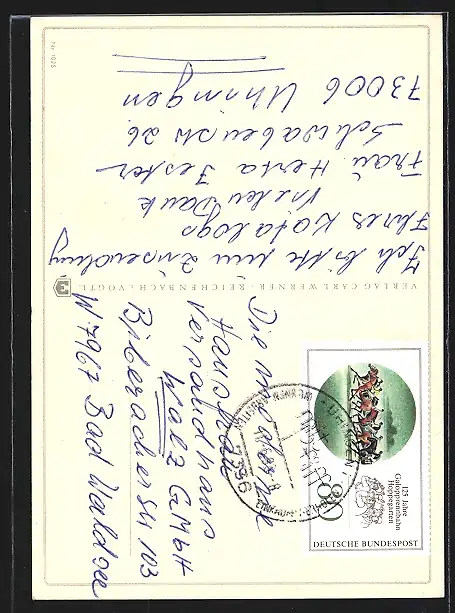 Ich bitte um Zusendung
Ihres Katalogs
Vielen Dank
Frau Herta Fester
Schwabenstr 26
73006 Uhingen
Die moderne
Hausfrau
Versandhaus
Walz GmbH
Biberacherstr 103
W 7967 Bad Waldsee
VERLAG CARL WERNER · REICHENBACH · VOGTL.
Nr 1025
125 Jahre
Galopprennbahn
Hoppegarten
80
DEUTSCHE BUNDESPOST
UHINGEN
7336